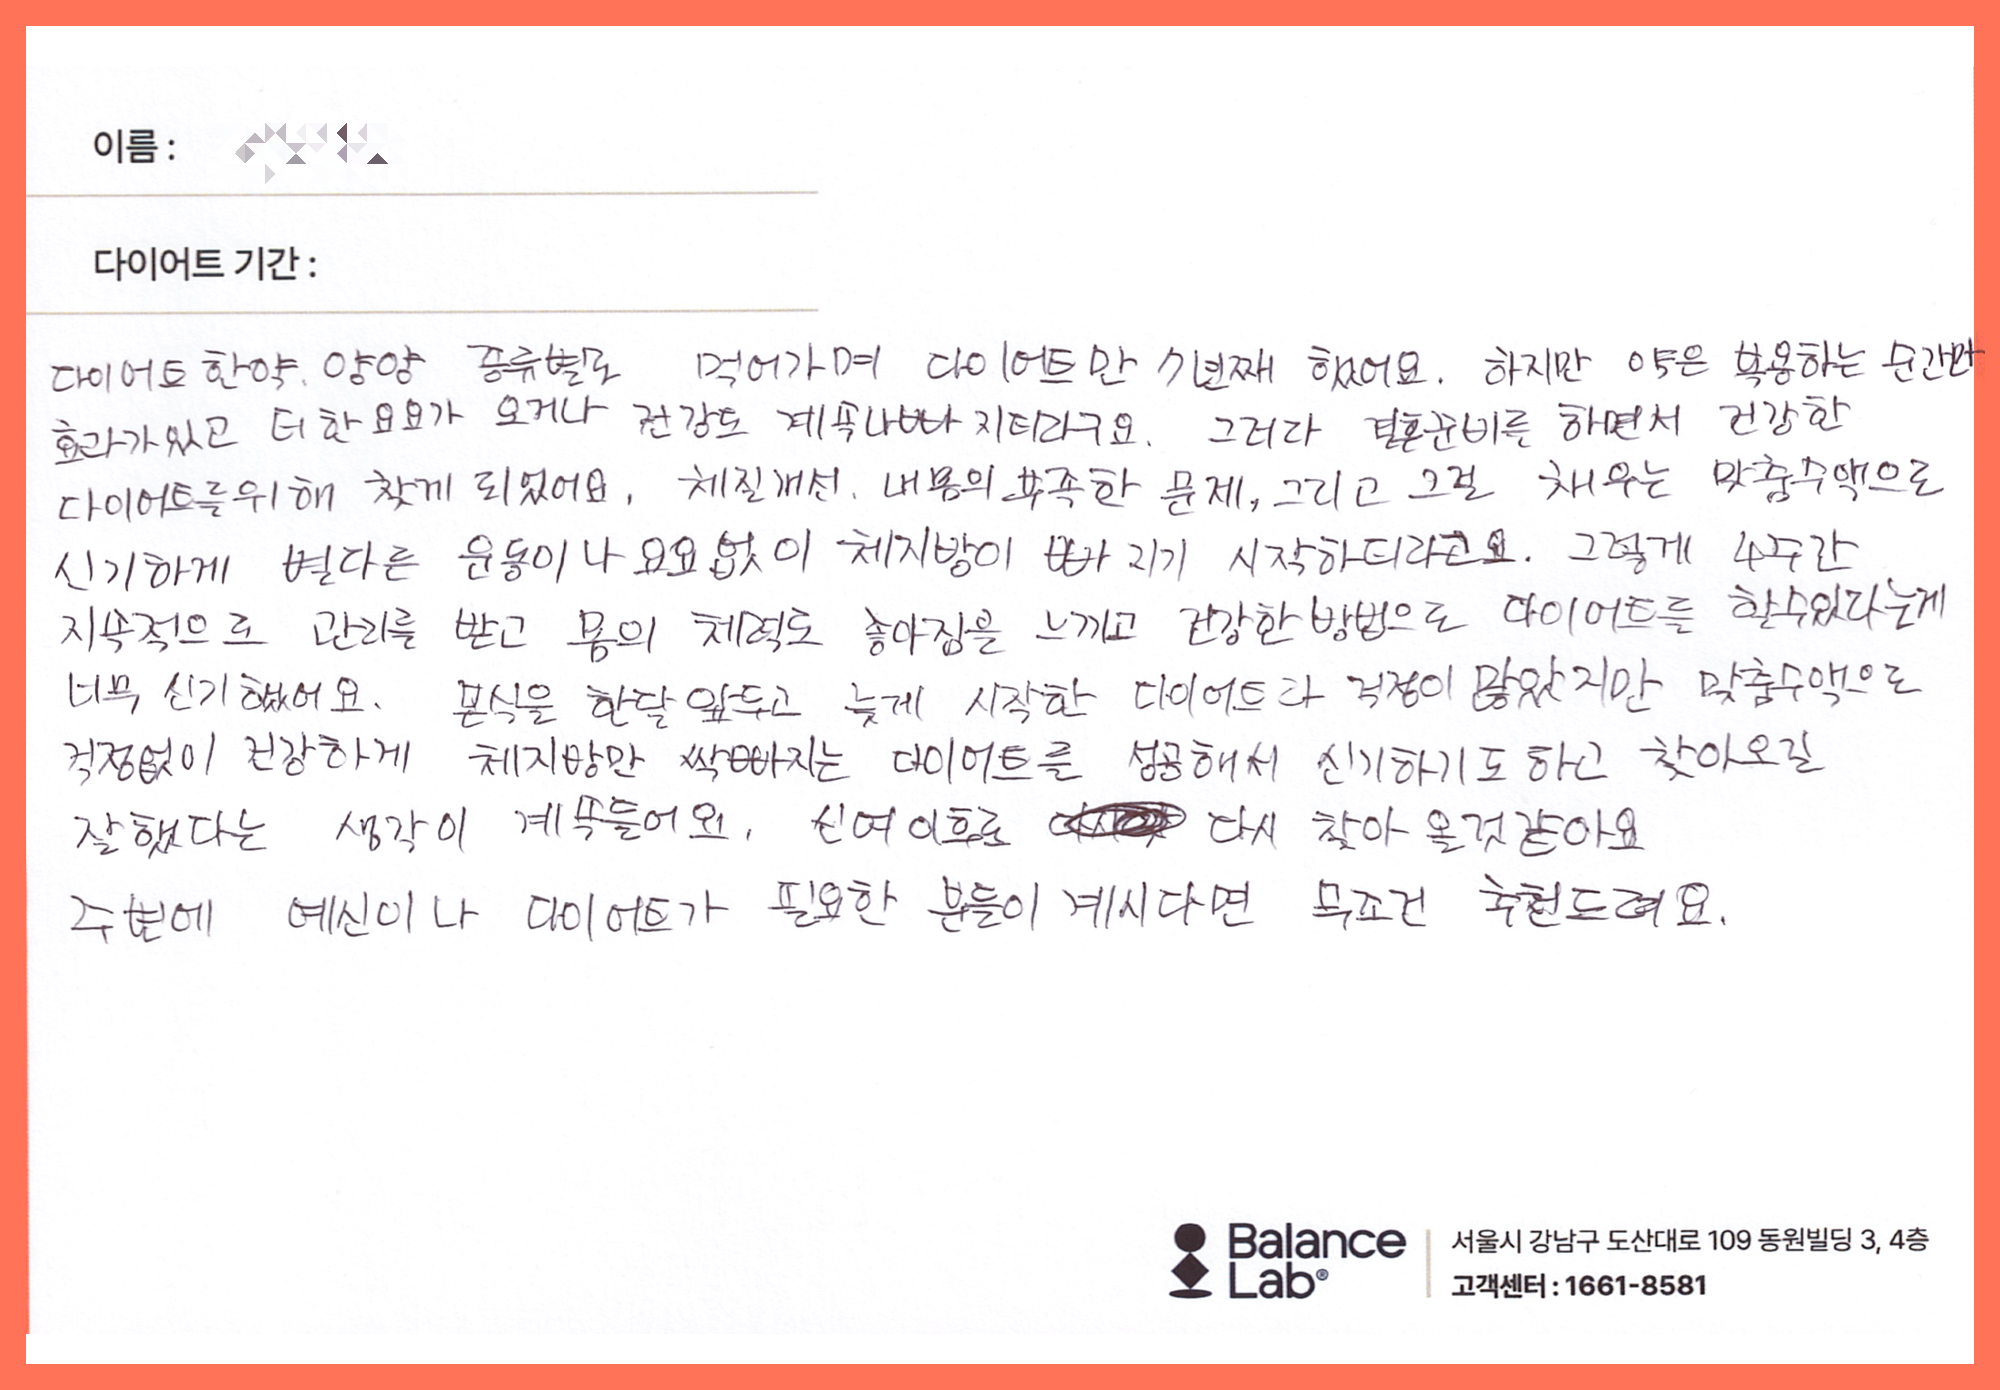 이름 :
다이어트 기간 :
다이어트 한약. 양양 종류별로 먹어가며 다이어트만 7년째 했어요. 하지만 약은 복용하는 순간만
효과가있고 더한 요요가 오거나 건강도 계속나빠 지더라구요. 그러다 결혼준비를 하면서 건강한
다이어트를위해 찾게 되었어요. 체질개선. 내몸의 부족한 문제, 그리고 그걸 채우는 맞춤수액으로
신기하게 별다른 운동이나 요요없이 체지방이 빠지기 시작하더라고요. 그렇게 4주간
지속적으로 관리를 받고 몸의 체력도 좋아짐을 느끼고 건강한방법으로 다이어트를 할수있다는게
너무 신기했어요. 본식을 한달앞두고 늦게 시작한 다이어트라 걱정이 많았지만 맞춤수액으로
걱정없이 건강하게 체지방만 싹빠지는 다이어트를 성공해서 신기하기도 하고 찾아오길
잘했다는 생각이 계속들어요. 신여이후로 다시 찾아 올것같아요
주변에 예신이나 다이어트가 필요한 분들이 계시다면 무조건 추천드려요.
Balance
Lab®
서울시 강남구 도산대로 109 동원빌딩 3, 4층
고객센터 : 1661-8581